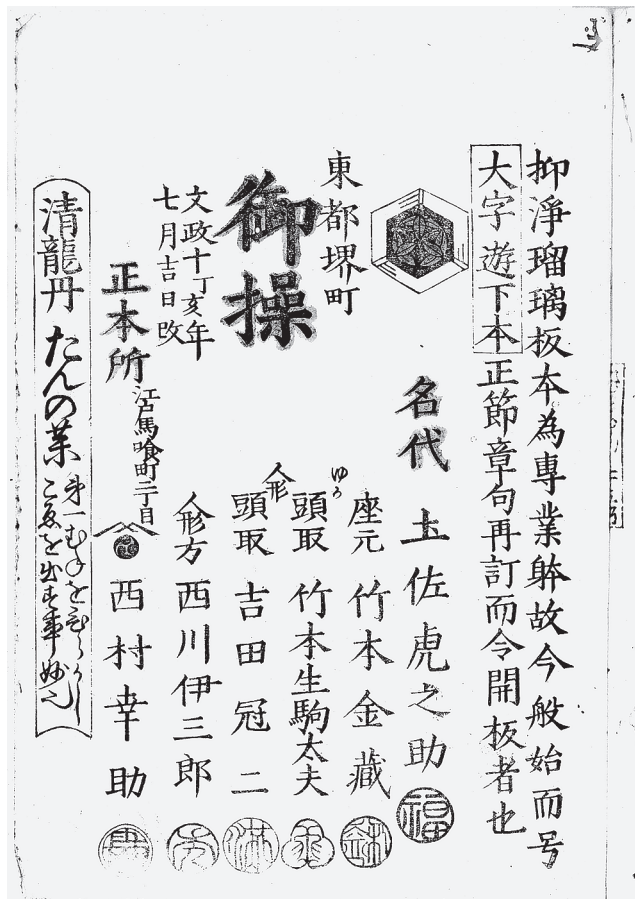 抑淨瑠璃板本為專業躰故今般始而号
大字遊下本正節章句再訂而令開板者也
名代 土佐虎之助
座元 竹本金藏
頭取 竹本生駒太夫
人形
頭取 吉田冠二
人形方 西川伊三郎
東都堺町
御操
文政十丁亥年
七月吉日改
正本所 江戸馬喰町二丁目 西村幸助
清龍丹 たんの薬